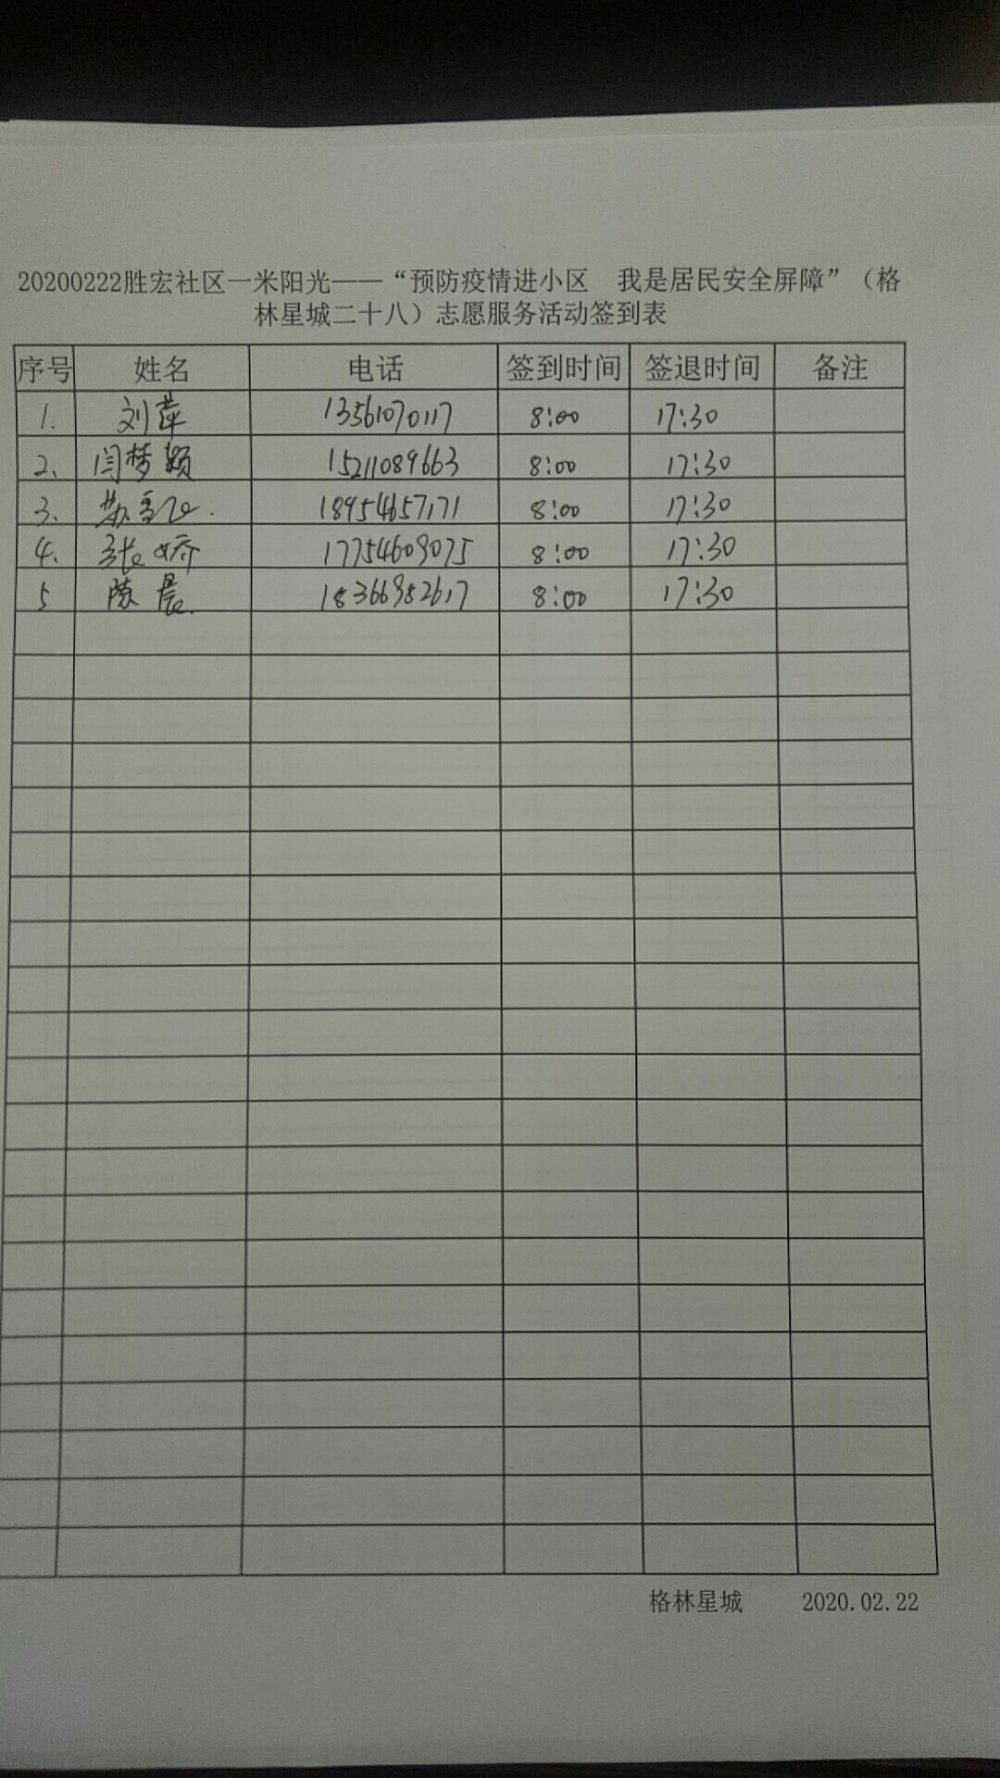 20200222胜宏社区一米阳光——“预防疫情进小区　我是居民安全屏障”（格
林星城二十八）志愿服务活动签到表
序号 姓名 电话 签到时间 签退时间 备注
1. 刘萍 13561070117 8:00 17:30
2、 闫梦颖 15211089663 8:00 17:30
3. 18954657171 8:00 17:30
4. 张娇 17754609075 8:00 17:30
5 陈晨 18366982617 8:00 17:30
格林星城 2020.02.22